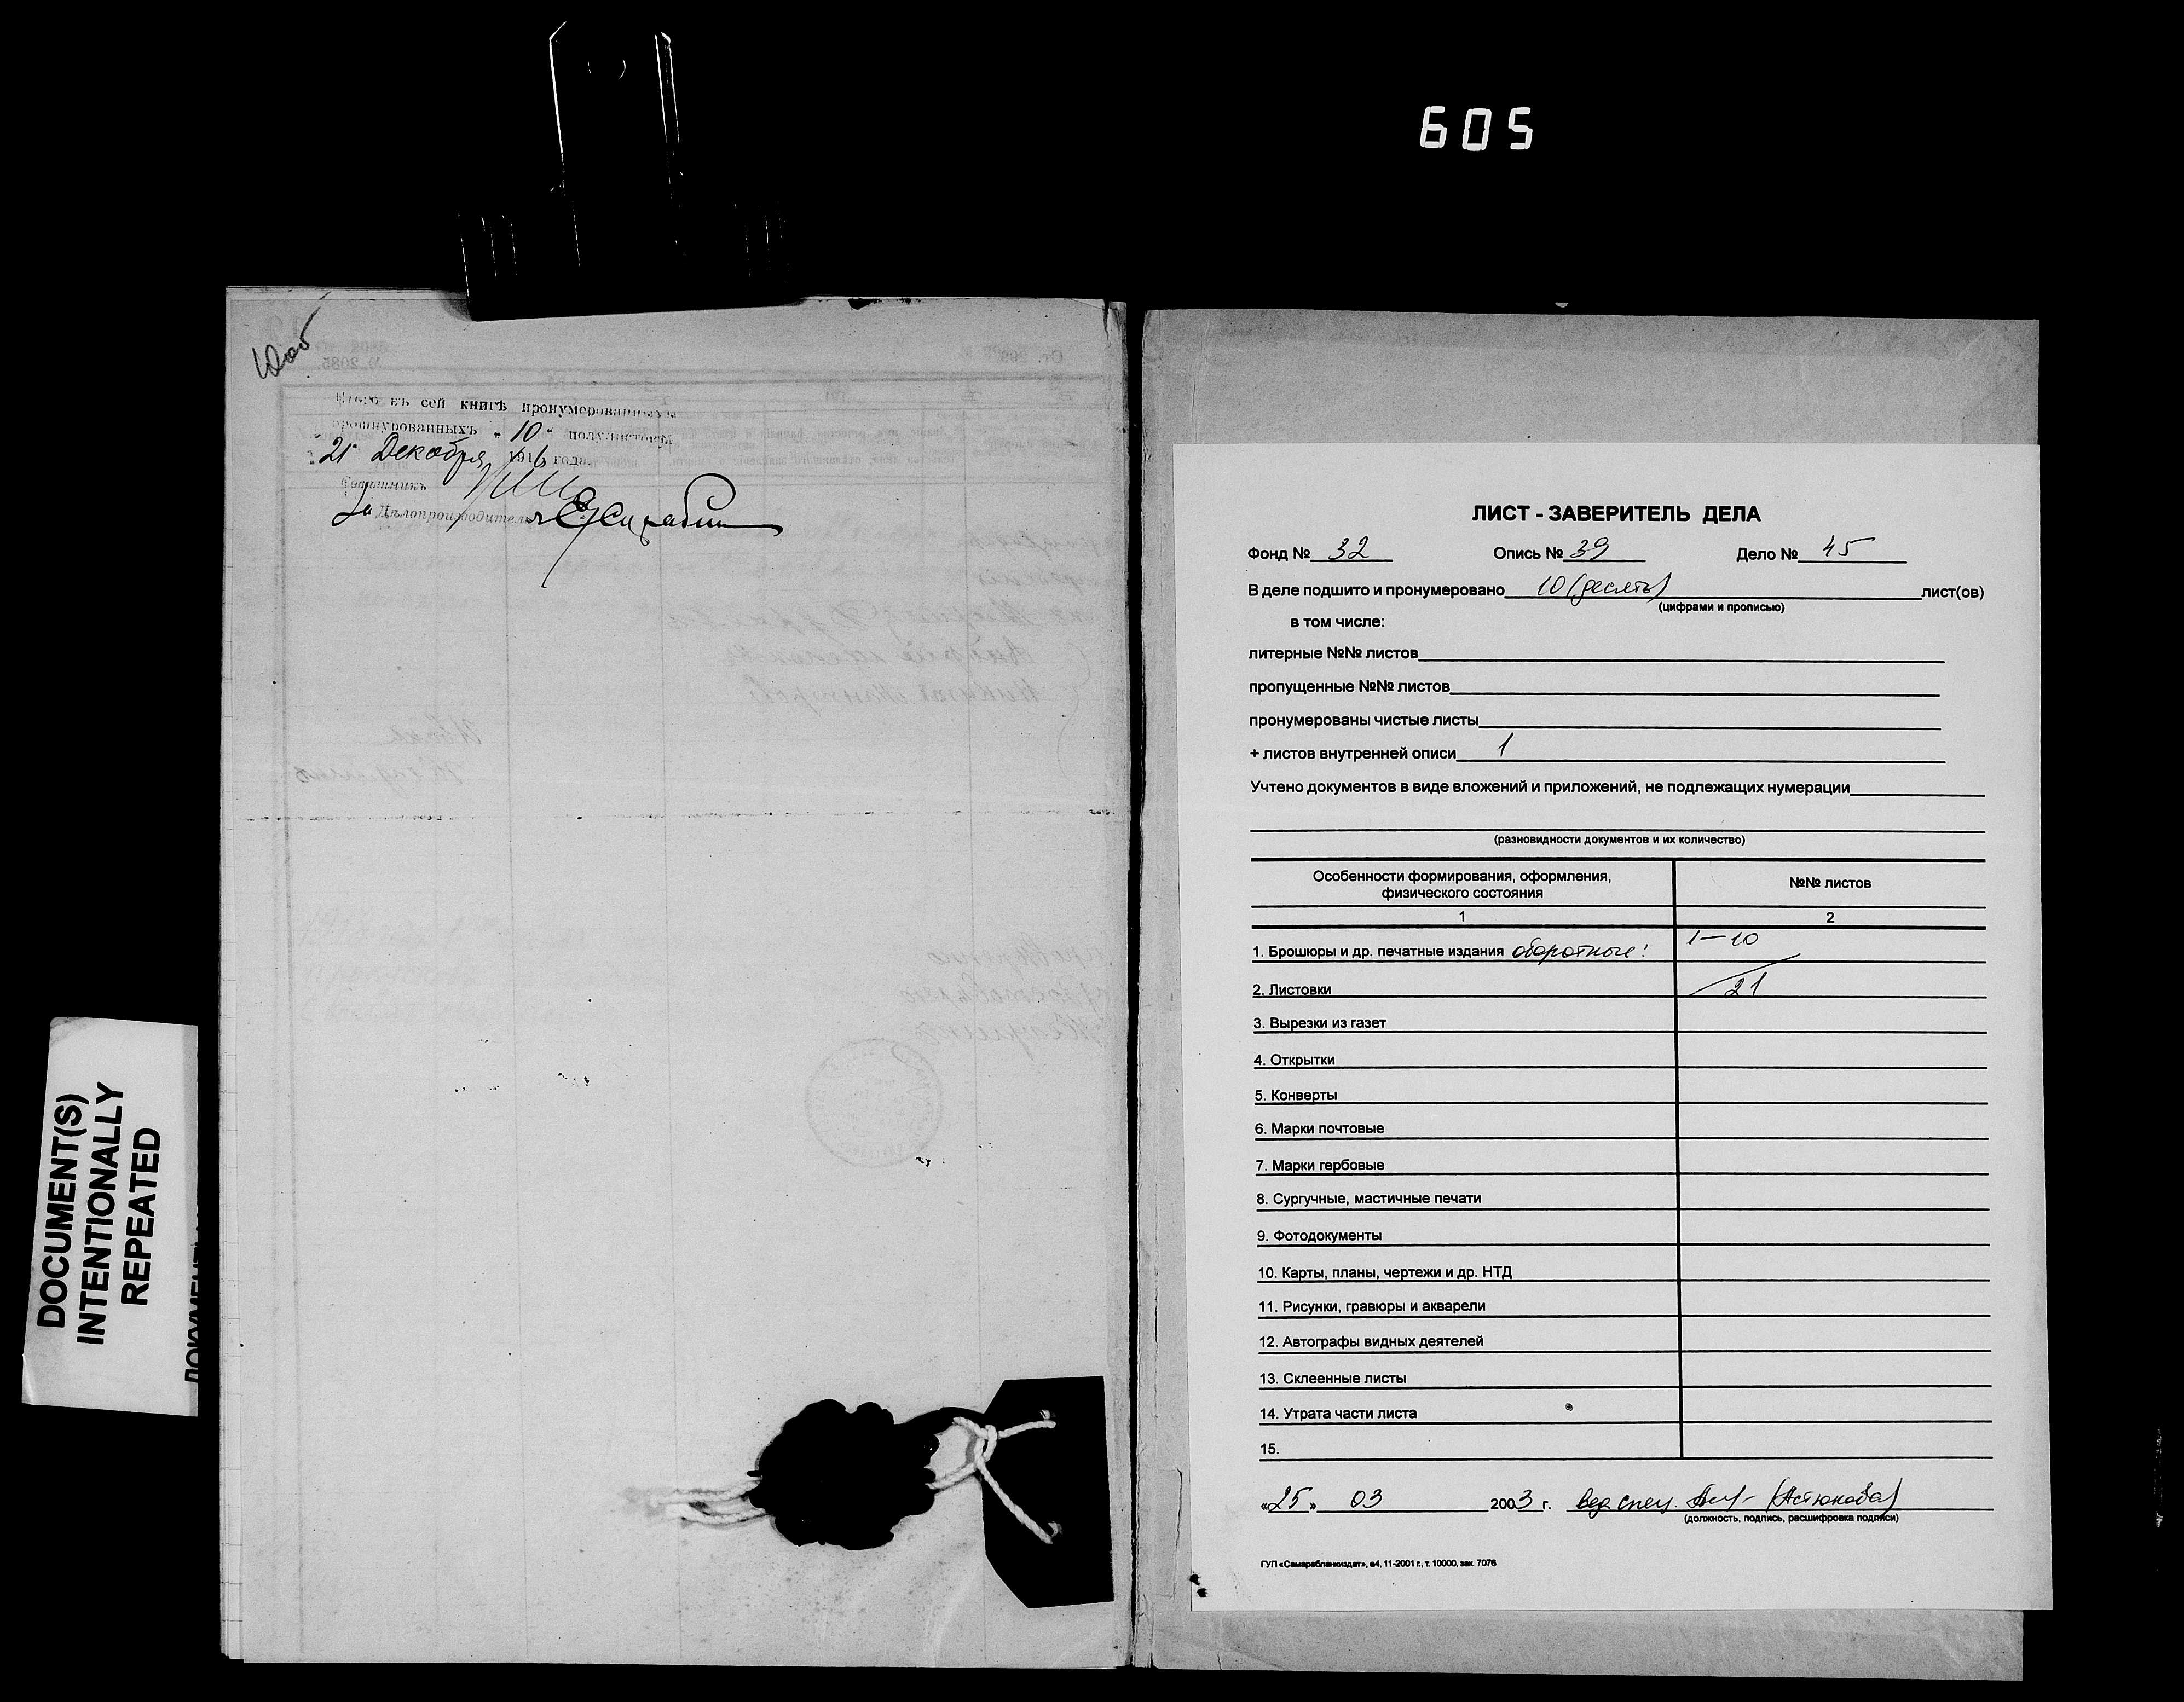 605
10об
Итого въ сей книгѣ пронумерованныхъ
прошнурованныхъ „10" полулистовъ
21" Декабря 1916 года.
За Дѣлопроизводителя
DOCUMENT(S)
INTENTIONALLY
REPEATED
ЛИСТ - ЗАВЕРИТЕЛЬ ДЕЛА
Фонд № 32 Опись № 39 Дело № 45
В деле подшито и пронумеровано 10 (десять) лист(ов)
(цифрами и прописью)
в том числе:
литерные №№ листов
пропущенные №№ листов
пронумерованы чистые листы
+ листов внутренней описи 1
Учтено документов в виде вложений и приложений, не подлежащих нумерации
(разновидности документов и их количество)
Особенности формирования, оформления,
физического состояния
№№ листов
1 2
1. Брошюры и др. печатные издания оборотные: 1-10
2. Листовки 21
3. Вырезки из газет
4. Открытки
5. Конверты
6. Марки почтовые
7. Марки гербовые
8. Сургучные, мастичные печати
9. Фотодокументы
10. Карты, планы, чертежи и др. НТД
11. Рисунки, гравюры и акварели
12. Автографы видных деятелей
13. Склеенные листы
14. Утрата части листа
15.
«25» 03 2003 г. вед спец. (Астюкова)
(должность, подпись, расшифровка подписи)
ГУП «Самарабланкиздат», а4, 11-2001 г., т. 10000, зак. 7076